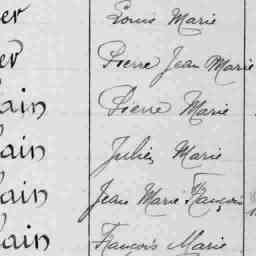 er Louis Marie
er Pierre Jean Marie
ain Pierre Marie
ain Julien Marie
ain Jean Marie François
ain François Marie